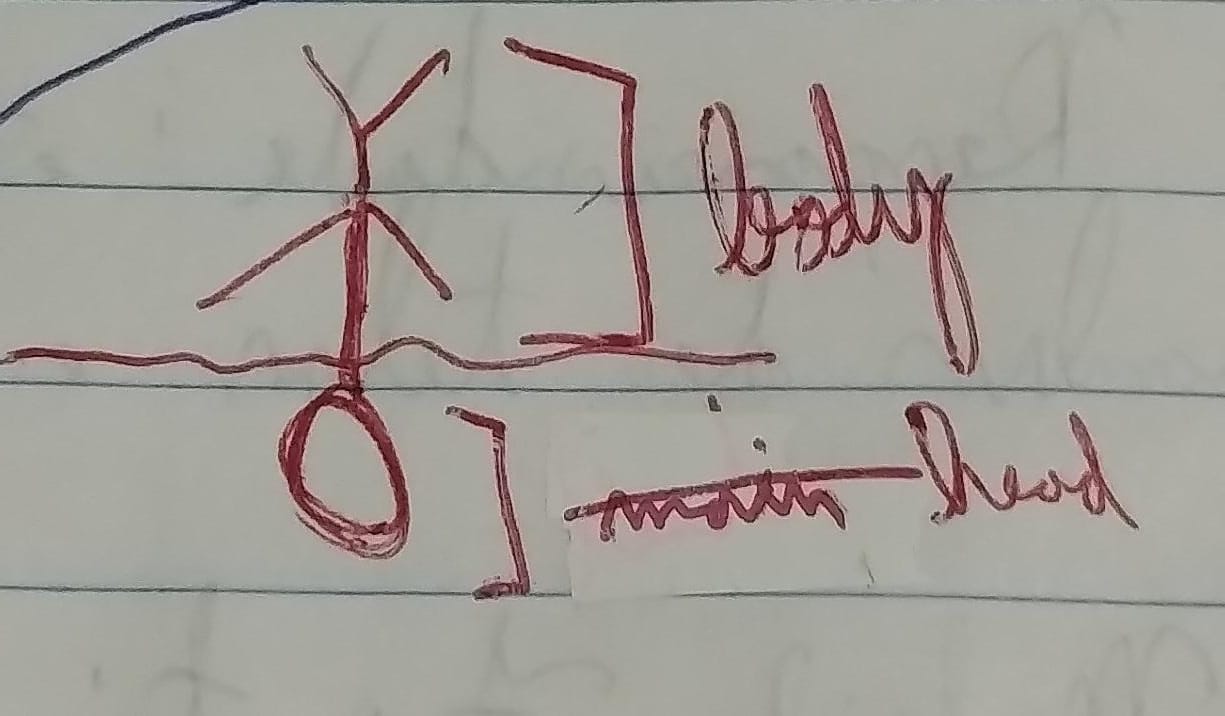 body
main head